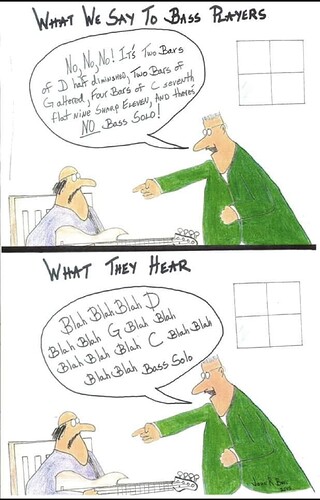 What We Say To Bass Players
No, No, No! It's Two Bars
of D half diminished, Two Bars of
G altered, Four Bars of C seventh
flat nine sharp eleven, and there's
NO Bass Solo!
What They Hear
Blah Blah Blah D
Blah Blah G Blah Blah
Blah Blah Blah C Blah Blah
Blah Blah Bass Solo